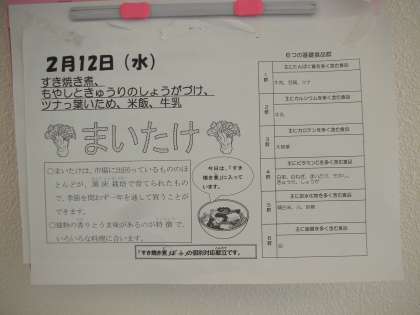 2月12日（水）
すき焼き煮、
もやしときゅうりのしょうがづけ、
ツナっ葉いため、米飯、牛乳
まいたけ
○まいたけは、市場に出回っているもののほ
とんどが、菌床栽培で育てられたもの
で、季節を問わず一年を通して買うことが
できます。
○独特の香りとうま味があるのが特徴で、
いろいろな料理に合います。
今日は、「すき
焼き煮」に入って
います。
の個別対応献立です。
6つの基礎食品群
1群
主にたんぱく質を多く含む食品
牛肉、豆腐、ツナ
2群
主にカルシウムを多く含む食品
牛乳
3群
主にカロテンを多く含む食品
4群
主にビタミンCを多く含む食品
5群
主に炭水化物を多く含む食品
6群
主に脂質を多く含む食品
油